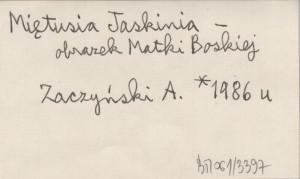 Miętusia Jaskinia –
obrazek Matki Boskiej
Zaczyński A. *1986 u